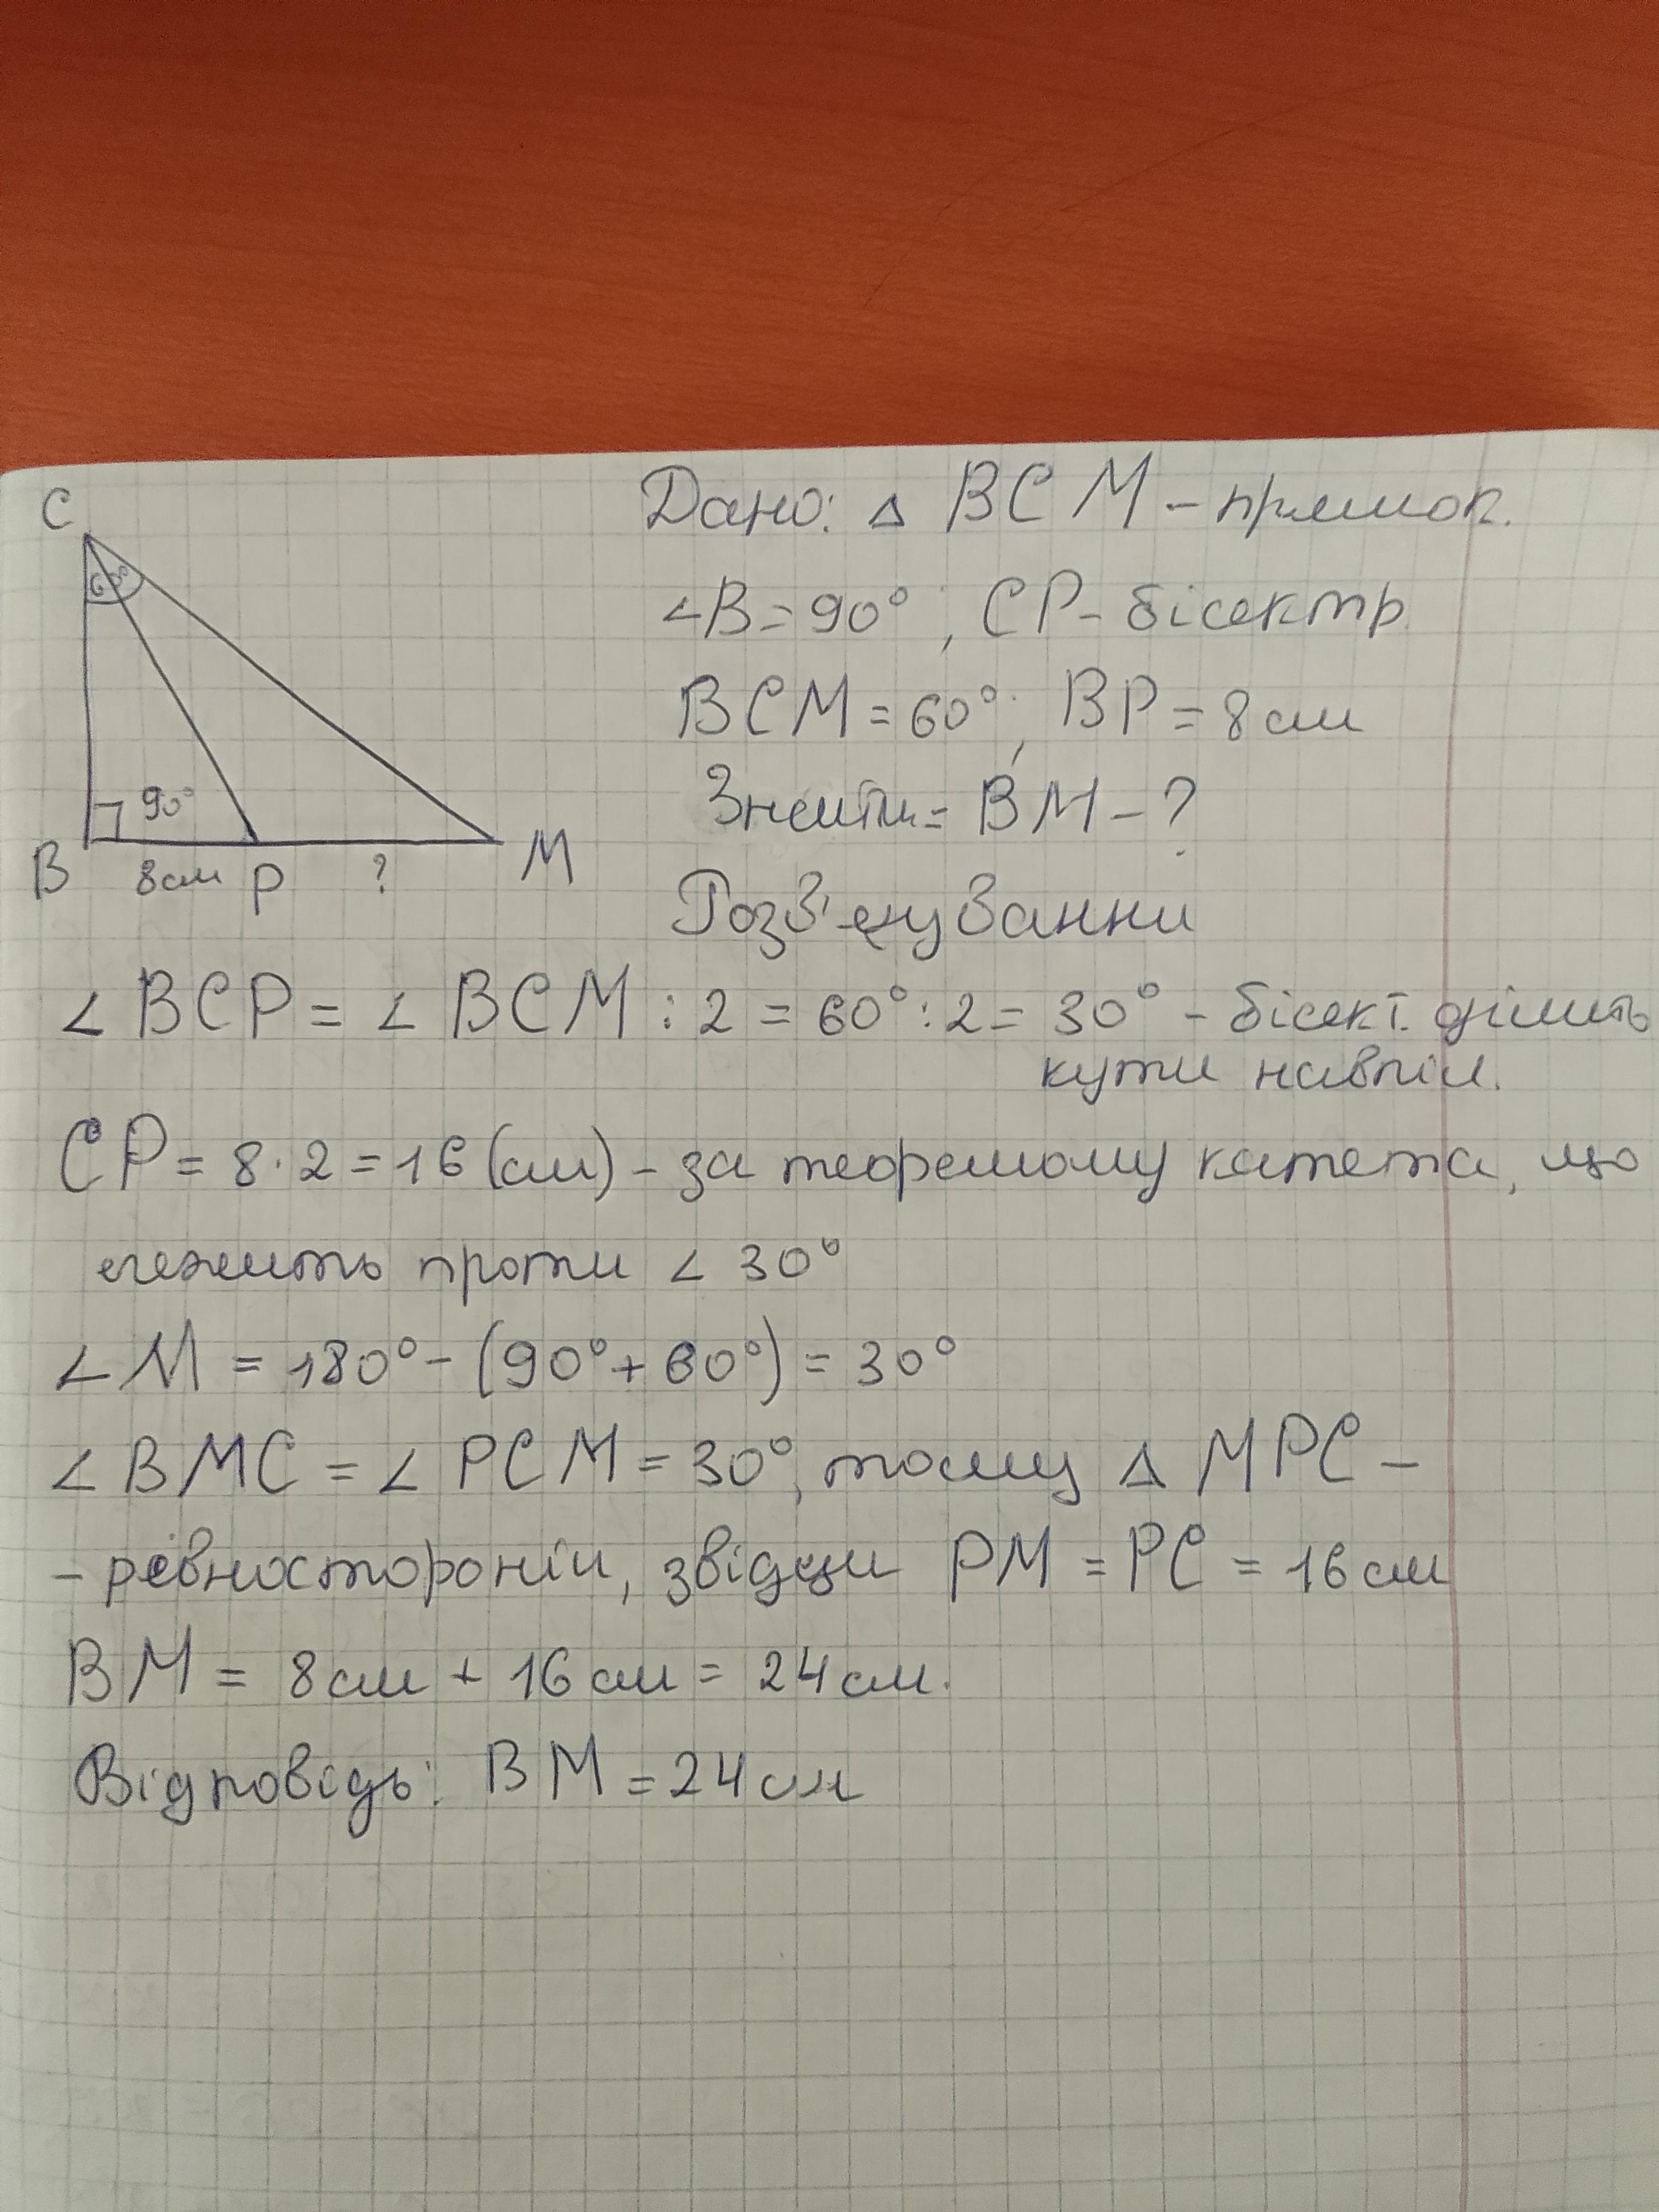 C
60°
90°
B 8см P ? M
Дано: △ BCM – прямок.
∠B = 90°, CP – бісектр.
BCM = 60°, BP = 8 см
Знайти = BM – ?
Розв'язування
∠ BCP = ∠ BCM : 2 = 60° : 2 = 30° – бісект. ділить
кути навпіл.
CP = 8 · 2 = 16 (см) – за теоремою катета, що
лежить проти ∠ 30°
∠ M = 180° – (90° + 60°) = 30°
∠ BMC = ∠ PCM = 30°, тому △ MPC –
– рівностороній, звідци PM = PC = 16 см
BM = 8 см + 16 см = 24 см.
Відповідь: BM = 24 см